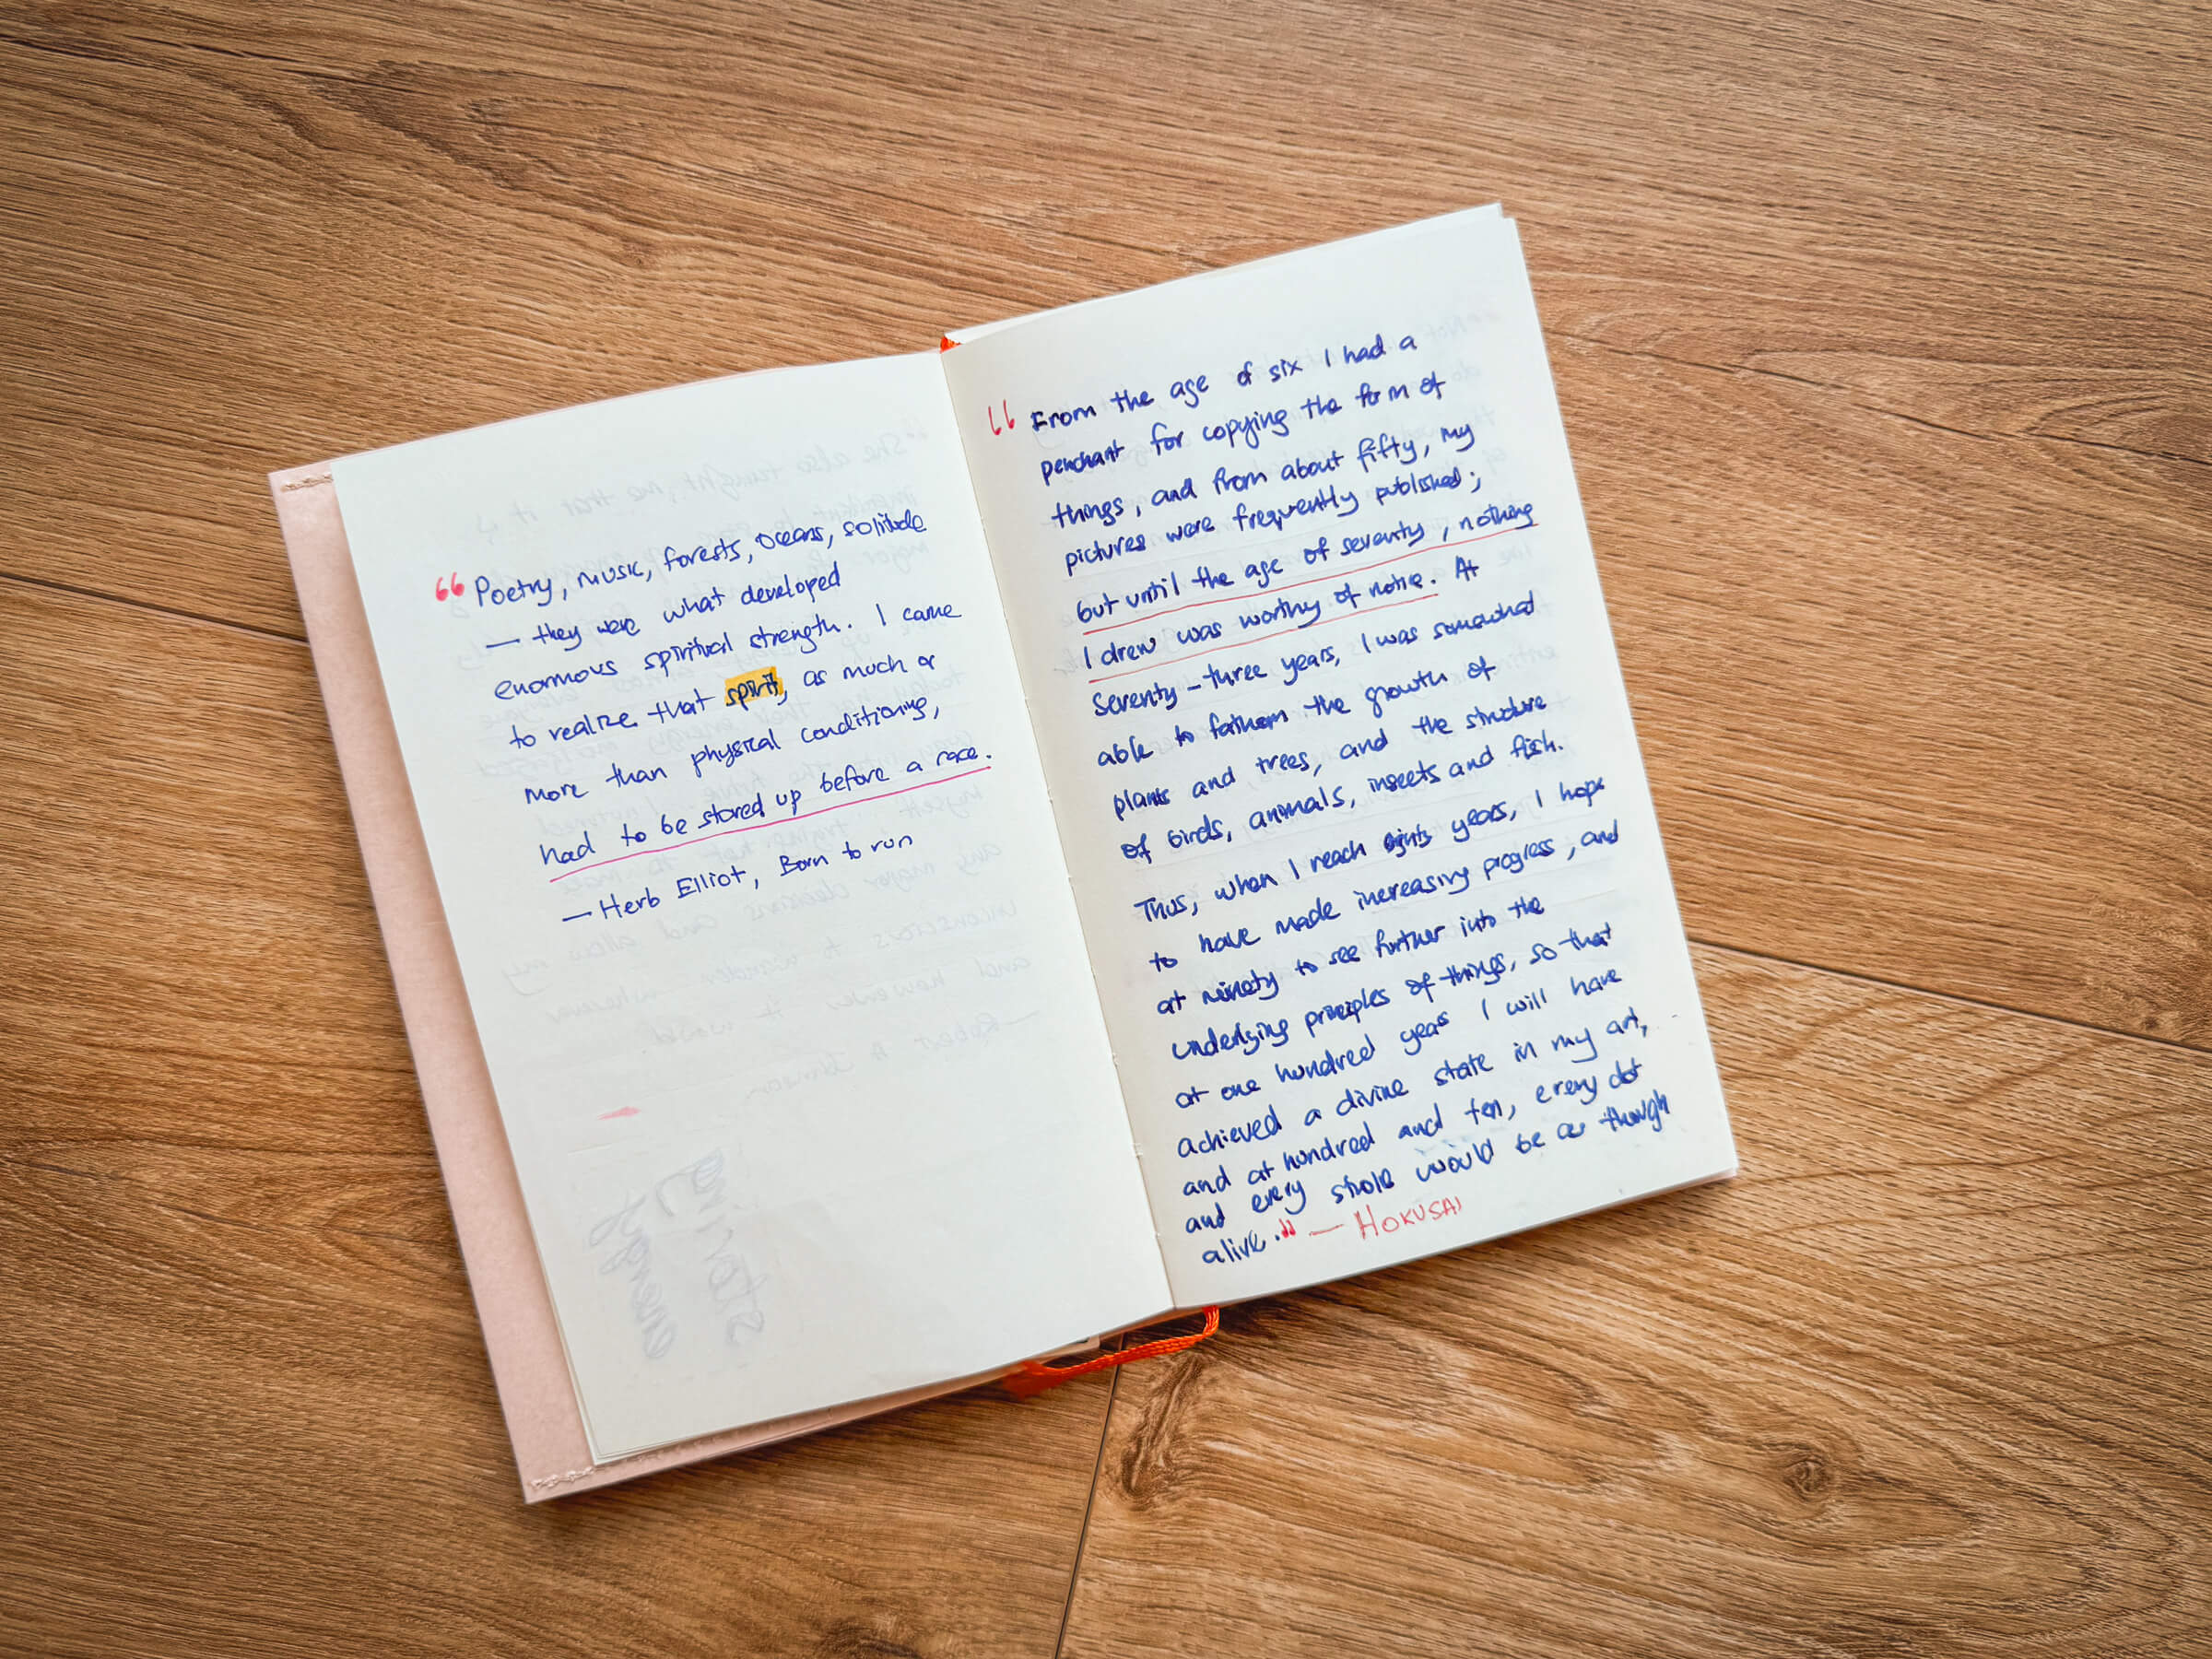 “Poetry, music, forests, oceans, solitude
— they were what developed
enormous spiritual strength. I came
to realize that spirit, as much or
more than physical conditioning,
had to be stored up before a race.
— Herb Elliot, Born to run
“From the age of six I had a
penchant for copying the form of
things, and from about fifty, my
pictures were frequently published;
but until the age of seventy, nothing
I drew was worthy of notice. At
seventy-three years, I was somewhat
able to fathom the growth of
plants and trees, and the structure
of birds, animals, insects and fish.
Thus, when I reach eighty years, I hope
to have made increasing progress, and
at ninety to see further into the
underlying principles of things, so that
at one hundred years I will have
achieved a divine state in my art,
and at hundred and ten, every dot
and every stroke would be as though
alive.” — HOKUSAI